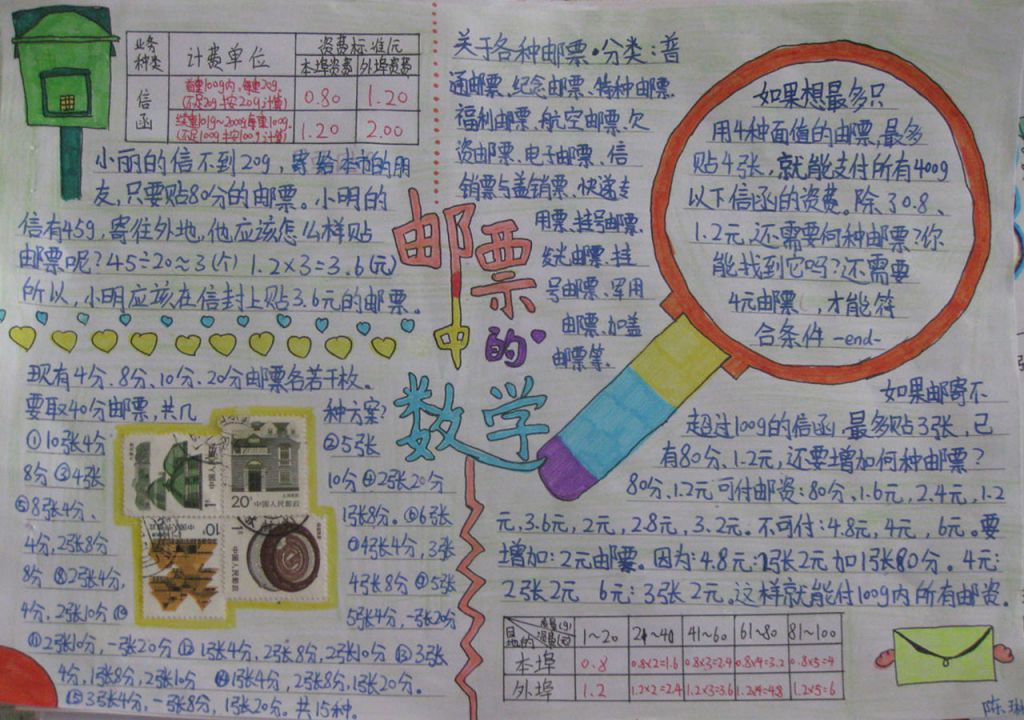 业务种类 计费单位 资费标准/元
本埠资费 外埠资费
信函
首重100g内,每重20g,
(不足20g按20g计算) 0.80 1.20
续重101g~2000g每重100g,
(不足100g按100g计算) 1.20 2.00
小丽的信不到20g,寄给本市的朋
友,只要贴80分的邮票。小明的
信有45g,寄往外地,他应该怎么样贴
邮票呢?45÷20≈3(个) 1.2×3=3.6(元)
所以,小明应该在信封上贴3.6元的邮票。
现有4分、8分、10分、20分邮票各若干枚。
要取40分邮票,共几种方案?
①10张4分 ②5张
8分 ③4张 10分 ④2张20分
⑤8张4分、 1张8分。⑥6张
4分,2张8分 ⑦4张4分,3张
8分 ⑧2张4分, 4张8分 ⑨5张
4分,2张10分 ⑩ 5张4分,一张20分
⑪2张10分,一张20分 ⑫1张4分,2张8分,2张10分 ⑬3张
4分,1张8分,2张10分 ⑭1张4分,2张8分,1张20分。
⑮3张4分,一张8分,1张20分。共15种。
20分 中国人民邮政
中国人民邮政
中国人民邮政
邮票中的数学
关于各种邮票·分类:普
通邮票、纪念邮票、特种邮票、
福利邮票、航空邮票、欠
资邮票、电子邮票、信
销票与盖销票、快递专
用票、挂号邮票、
发光邮票、挂
号邮票、军用
邮票、加盖
邮票等。
如果想最多只
用4种面值的邮票,最多
贴4张,就能支付所有400g
以下信函的资费。除了0.8、
1.2元,还需要何种邮票?你
能找到它吗?还需要
4元邮票,才能符
合条件 -end-
如果邮寄不
超过100g的信函,最多贴3张,已
有80分、1.2元,还要增加何种邮票?
80分、1.2元可付邮资:80分,1.6元,2.4元,1.2
元,3.6元,2元,2.8元,3.2元。不可付:4.8元,4元,6元。要
增加:2元邮票。因为:4.8元:2张2元加1张80分。4元:
2张2元 6元:3张2元。这样就能付100g内所有邮资。
目的地 资费(元) 质量(g) 1~20 21~40 41~60 61~80 81~100
本埠 0.8 0.8×2=1.6 0.8×3=2.4 0.8×4=3.2 0.8×5=4
外埠 1.2 1.2×2=2.4 1.2×3=3.6 1.2×4=4.8 1.2×5=6